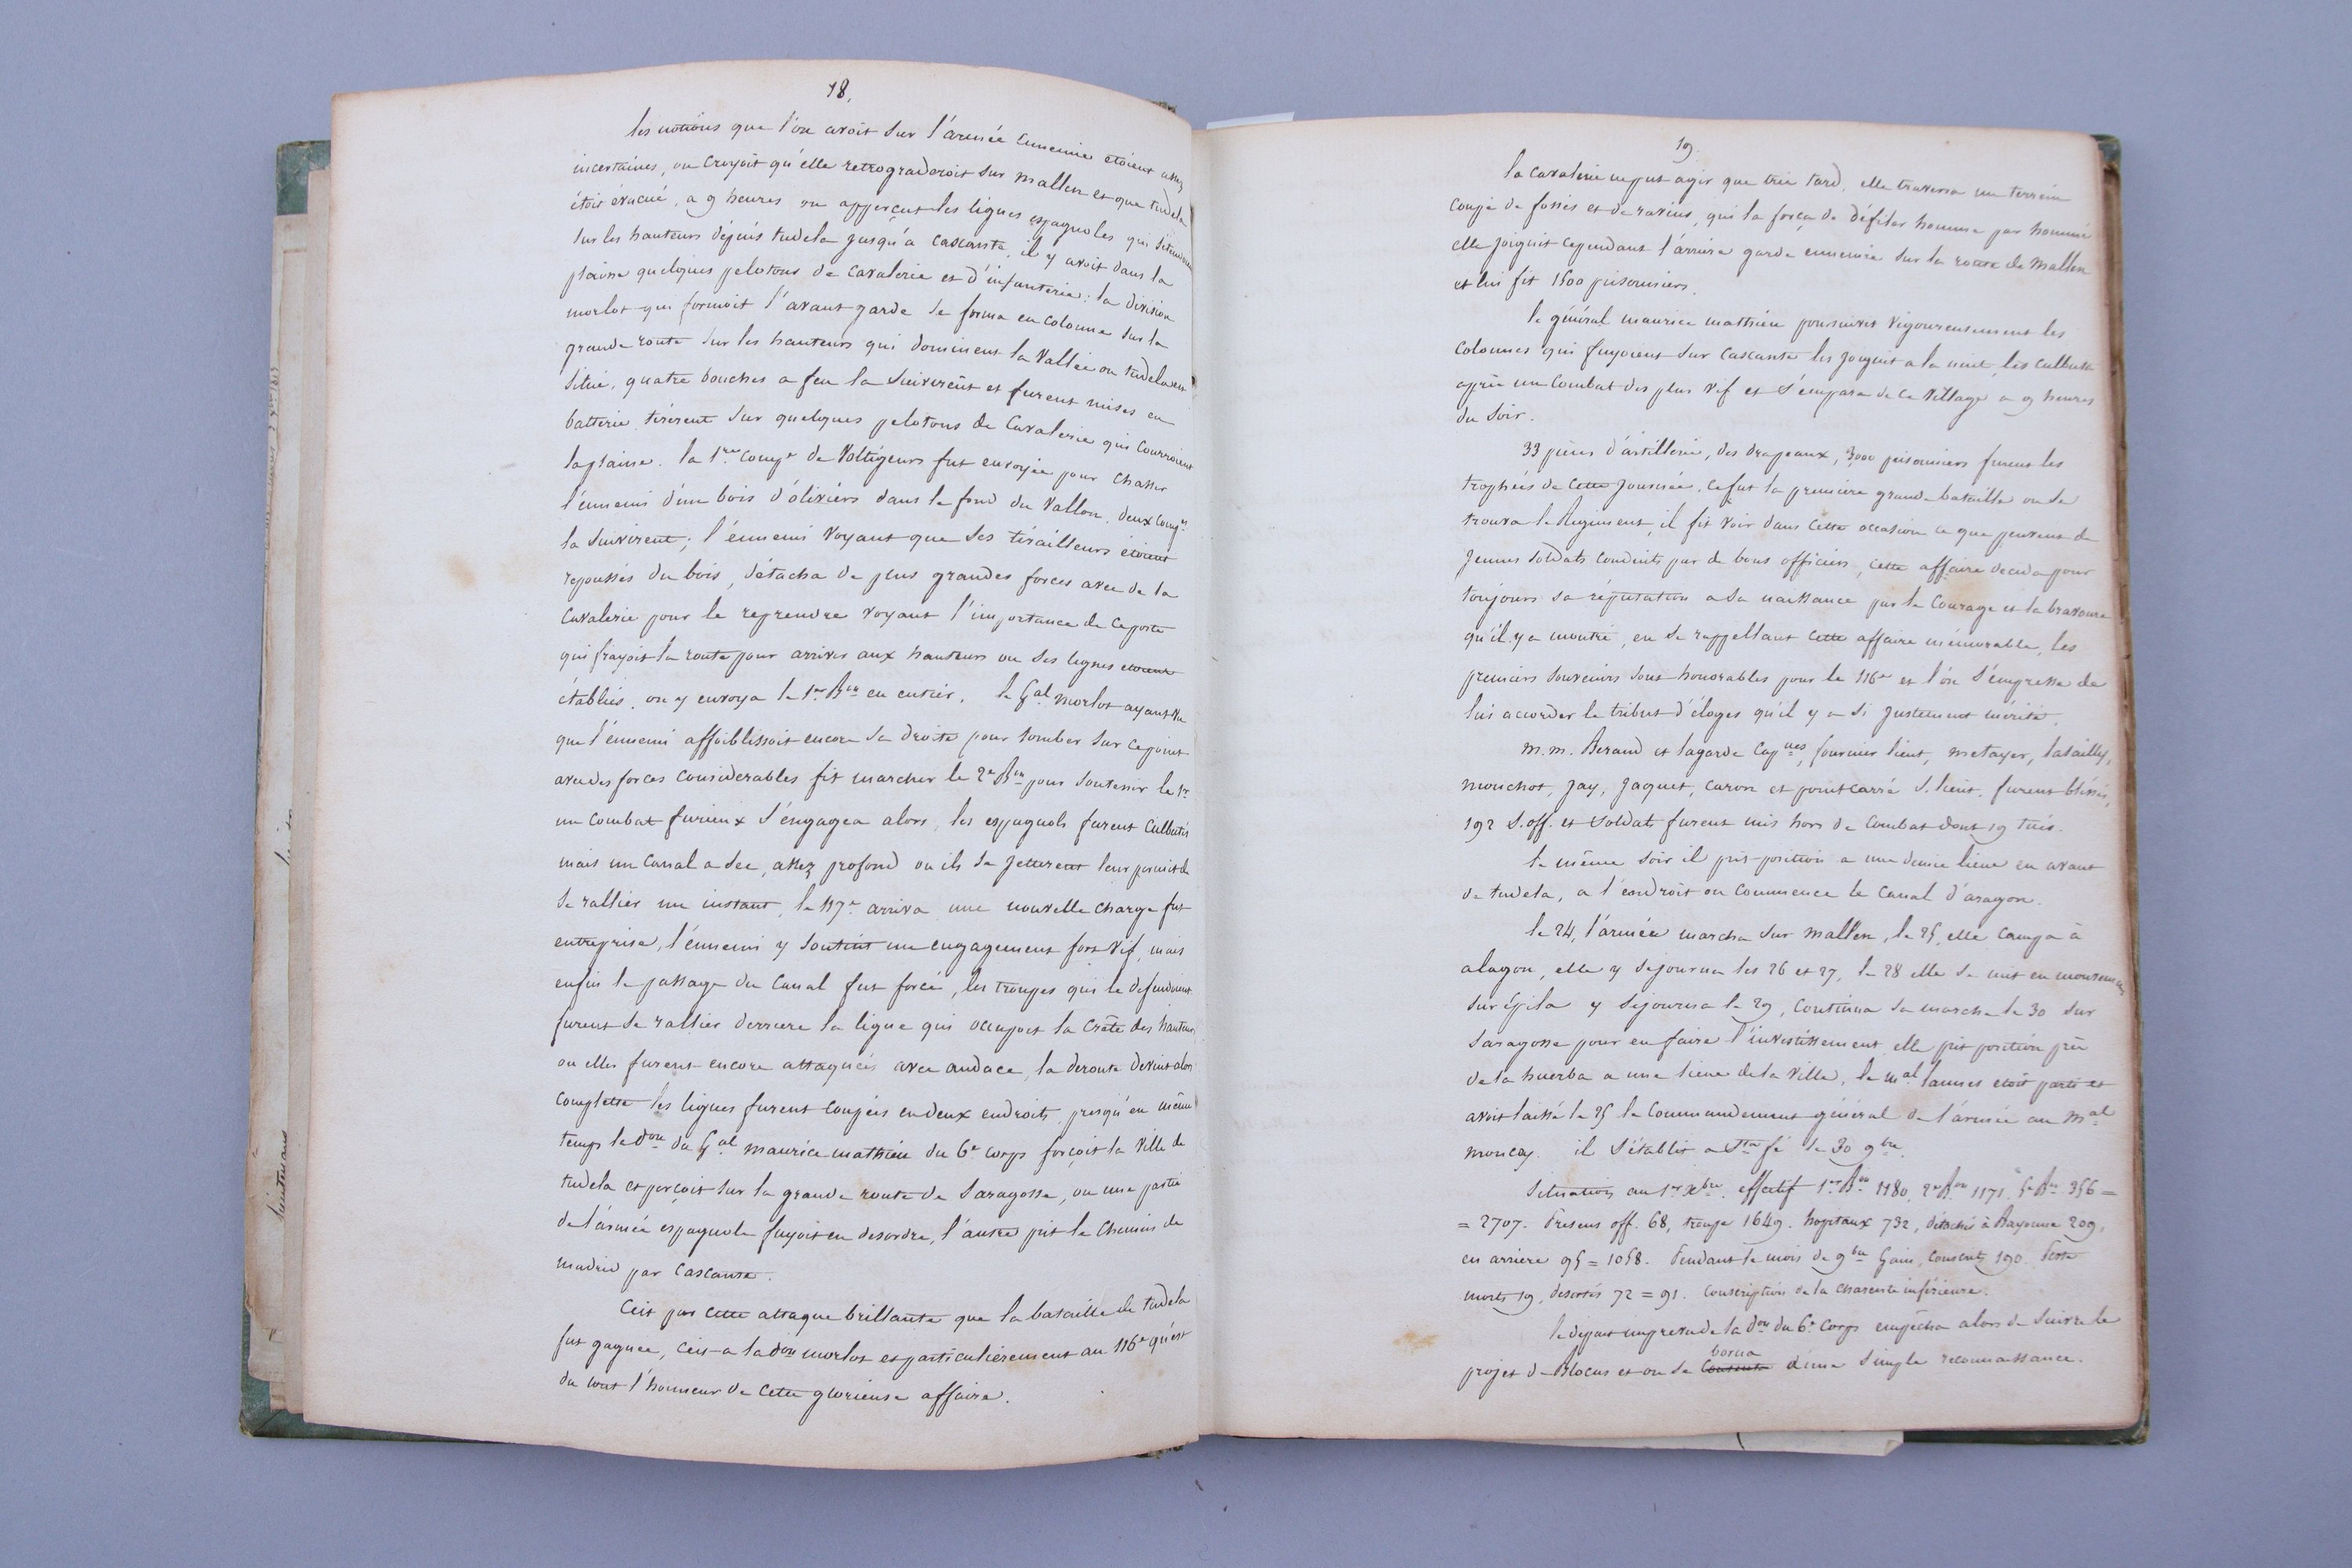 18.
les notions que l'on avoit sur l'armée ennemie étoient assez
incertaines, on croyoit qu'elle retrograderoit sur mallen et que tudela
étoit évacué, a 9 heures on apperçut les lignes espagnoles qui s'étendoient
sur les hauteurs depuis tudela jusqu'a cascante, il y avoit dans la
plaine quelques pelotons de cavalerie et d'infanterie: la division
morlot qui formoit l'avant garde se forma en colonne sur la
grande route sur les hauteurs qui dominent la vallée ou tudela est
situé, quatre bouches a feu la suivirent et furent mises en
batterie, tirèrent sur quelques pelotons de cavalerie qui couvroient
la plaine. la 1re compe de voltigeurs fut envoyée pour chasser
l'ennemi d'un bois d'oliviers dans le fond du vallon, deux compes
la suivirent; l'ennemi voyant que ses tirailleurs étoient
repoussés du bois, détacha de plus grandes forces avec de la
cavalerie pour le reprendre voyant l'importance de ce poste
qui frayoit la route pour arriver aux hauteurs ou ses lignes etoient
établies, on y envoya le 1er Bon en entier. le Gal morlot ayant vu
que l'ennemi affoiblissoit encore sa droite pour tomber sur ce point
avec des forces considerables fit marcher le 2e Bon pour soutenir le 1er
un combat furieux s'engagea alors, les espagnols furent culbutés
mais un canal a sec, assez profond ou ils se jetterent leur permit de
se rallier un instant, le 117e arriva une nouvelle charge fut
entreprise, l'ennemi y soutint un engagement fort vif, mais
enfin le passage du canal fut forcé, les troupes qui le defendoient
furent se rallier derriere la ligne qui occupoit la crête des hauteurs
ou elles furent encore attaquées avec audace, la deroute devint alors
complette les lignes furent coupées en deux endroits, presqu'en même
temps la don du Gal maurice mathieu du 6e corps forçoit la ville de
tudela et perçoit sur la grande route de Saragosse, ou une partie
de l'armée espagnole fuyoit en desordre, l'autre prit le chemin de
madrid par cascante.
C'est par cette attaque brillante que la bataille de tudela
fut gagnée, c'est a la don morlot et particulièrement au 116e qu'est
du tout l'honneur de cette glorieuse affaire.
19.
la cavalerie ne put agir que très tard, elle traversa un terrein
coupé de fossés et de ravins, qui la força de défiler homme par homme
elle joignit cependant l'arrière garde ennemie sur la route de mallen
et lui fit 1500 prisonniers.
le général maurice mathieu poursuivit vigoureusement les
colonnes qui fuyoient sur cascante les joignit a la nuit, les culbuta
après un combat des plus vif et s'empara de ce village a 9 heures
du soir.
33 pièces d'artillerie, des drapeaux, 3,000 prisonniers furent les
trophées de cette journée, ce fut la première grande bataille ou se
trouva le Regiment, il fit voir dans cette occasion ce que peuvent de
jeunes soldats conduits par de bons officiers, cette affaire decida pour
toujours sa réputation a sa naissance par le courage et la bravoure
qu'il y a montré, en se rappellant cette affaire mémorable, les
premiers souvenirs sont honorables pour le 116e et l'on s'empresse de
lui accorder le tribut d'éloges qu'il y a si justement mérité.
m.m. Beraud et lagarde capnes, fournier lieut, metayer, latailly,
mouchot, Jay, Jaquet, caron et pointcarré s. lieut, furent blessés,
192 S. off. et soldats furent mis hors de combat dont 19 tués.
le même soir il prit position a une demie lieue en avant
de tudela, a l'endroit ou commence le canal d'aragon.
le 24, l'armée marcha sur mallen, le 25, elle campa à
alagon, elle y sejourna les 26 et 27, le 28 elle se mit en mouvement
sur Epila y sejourna le 29, continua sa marche le 30 sur
Saragosse pour en faire l'investissement, elle prit position près
de la huerba a une lieue de la ville, le mal lannes etoit parti et
avoit laissé le 25 le commandement général de l'armée au mal
moncey. il s'établit a Sta fé le 30 9bre.
Situation au 1er Xbre. effectif 1er Bon 1180, 2e Bon 1171, 5e Bon 356 =
= 2707. Presens off. 68, troupe 1649. hopitaux 732, détachés à Bayonne 209,
en arriere 95 = 1058. Pendant le mois de 9bre Gain, conscrits 190. Perte
morts 19, desertés 72 = 91. conscription de la charente inférieure.
le depart imprevu de la don du 6e corps empêcha alors de suivre le
borna
projet de Blocus et on se contenta d'une simple reconnaissance.